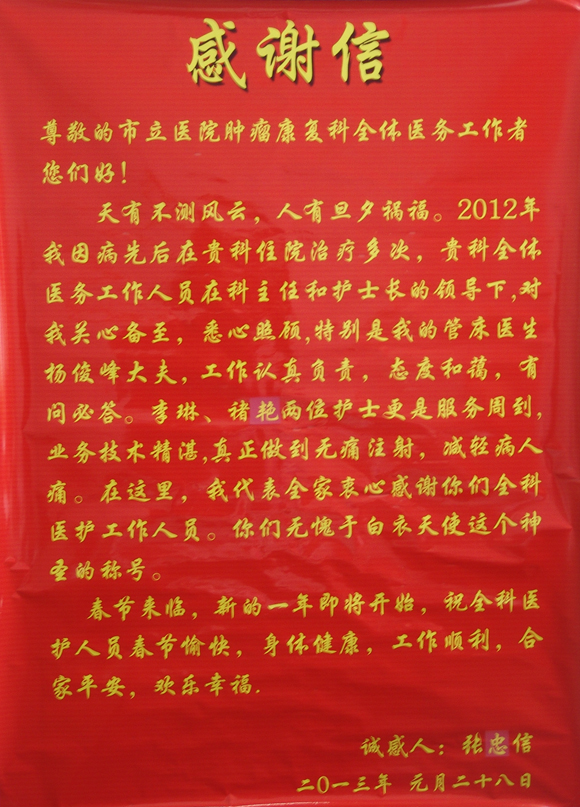 感谢信
尊敬的市立医院肿瘤康复科全体医务工作者
您们好！
天有不测风云，人有旦夕祸福。2012年
我因病先后在贵科住院治疗多次，贵科全体
医务工作人员在科主任和护士长的领导下,对
我关心备至，悉心照顾,特别是我的管床医生
杨俊峰大夫，工作认真负责，态度和蔼，有
问必答。李琳、诸艳两位护士更是服务周到,
业务技术精湛,真正做到无痛注射，减轻病人
痛。在这里，我代表全家衷心感谢你们全科
医护工作人员。你们无愧于白衣天使这个神
圣的称号。
春节来临，新的一年即将开始，祝全科医
护人员春节愉快，身体健康，工作顺利，合
家平安，欢乐幸福.
诚感人：张忠信
二0一三年 元月二十八日